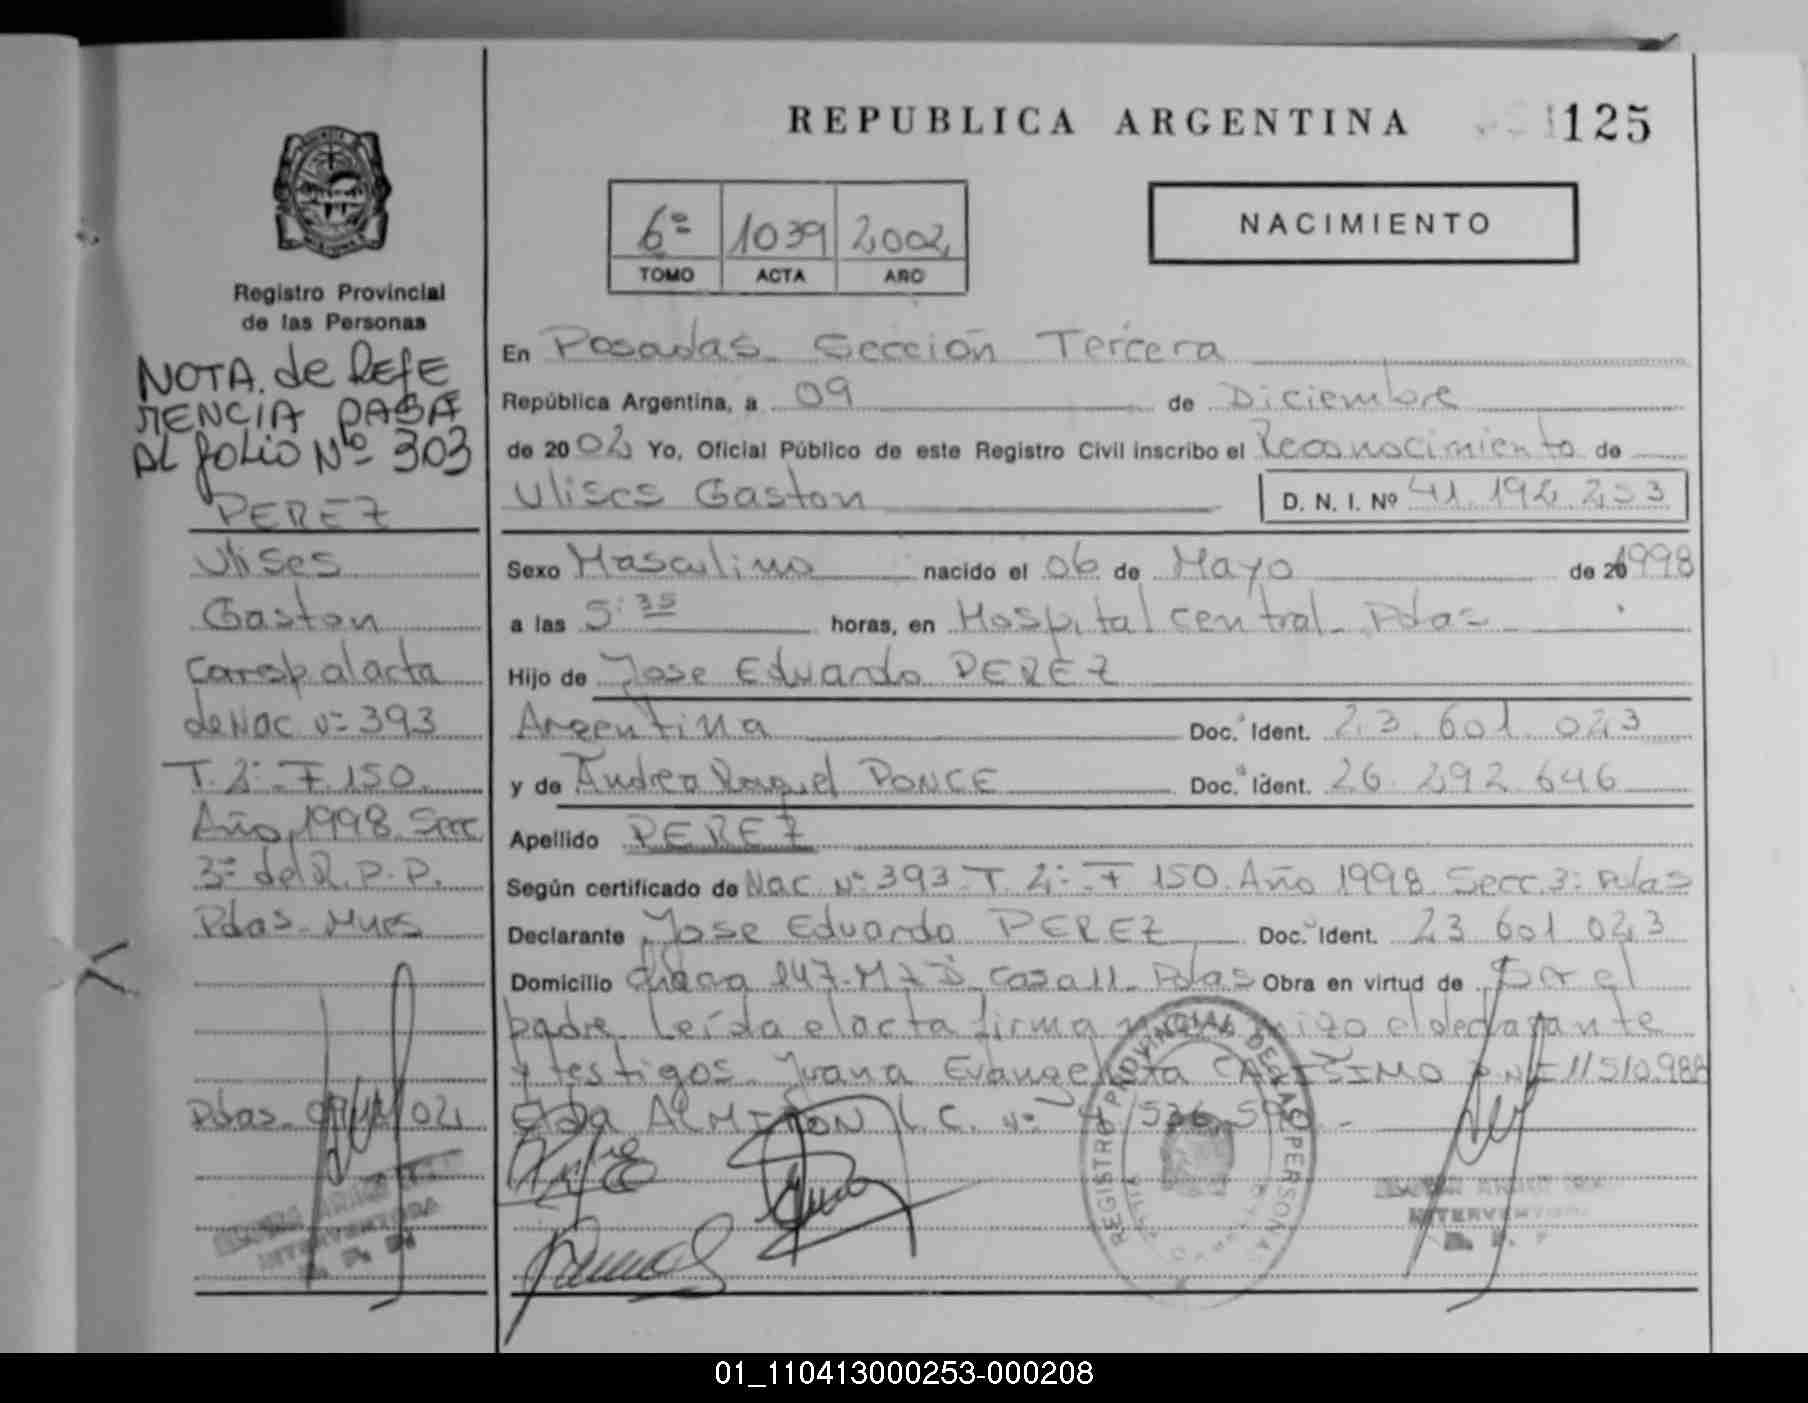 REPUBLICA ARGENTINA
125
6º 1039 2002
TOMO ACTA AÑO
NACIMIENTO
Registro Provincial
de las Personas
NOTA. de REFE
RENCIA PASA
AL folio Nº 303
PEREZ
Ulises
Gaston
Corresp. al acta
de Nac nº 393
T. 2º F 150
Año 1998 Secc
3º del R.P.P.
Pdas. Mnes
Pdas. 09/12/02
INTERVENTORA
En Posadas Sección Tercera
República Argentina, a 09 de Diciembre
de 2002 Yo, Oficial Público de este Registro Civil inscribo el Reconocimiento de
Ulises Gaston D. N. I. Nº 41.192.253
Sexo Masculino nacido el 06 de Mayo de 1998
a las 5:35 horas, en Hospital Central Pdas
Hijo de Jose Eduardo PEREZ
Argentina Doc. Ident. 23.601.023
y de Andrea Raquel PONCE Doc. Ident. 26.292.646
Apellido PEREZ
Según certificado de Nac nº 393 T. 2º F 150 Año 1998 Secc. 3º Pdas
Declarante Jose Eduardo PEREZ Doc. Ident. 23 601 023
Domicilio Chacra 147 Casa 11 Pdas Obra en virtud de Ser el
padre Leída el acta firma conmigo el declarante
y testigos Juana Evangelista D.N.I 11510.988
Elda ALMIRON L.C. nº
REGISTRO PROVINCIAL DE LAS PERSONAS
INTERVENTORA
01_110413000253-000208